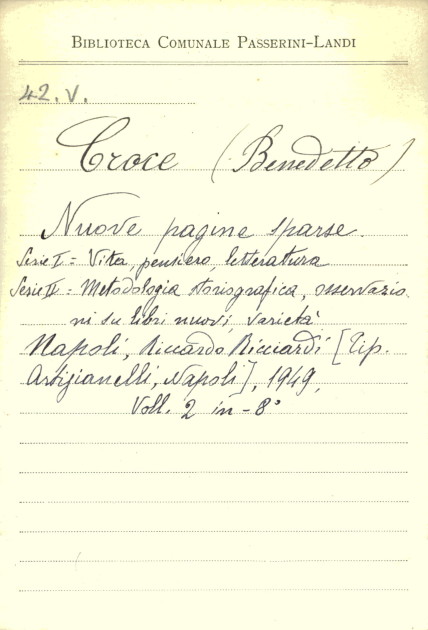 BIBLIOTECA COMUNALE PASSERINI-LANDI
42. V.
Croce (Benedetto)
Nuove pagine sparse.
Serie I = Vita, pensiero, letteratura
Serie II = Metodologia storiografica, osservazio
ni su libri nuovi, varietà
Napoli, Riccardo Ricciardi [Tip.
Artigianelli, Napoli], 1949,
Voll. 2 in-8°